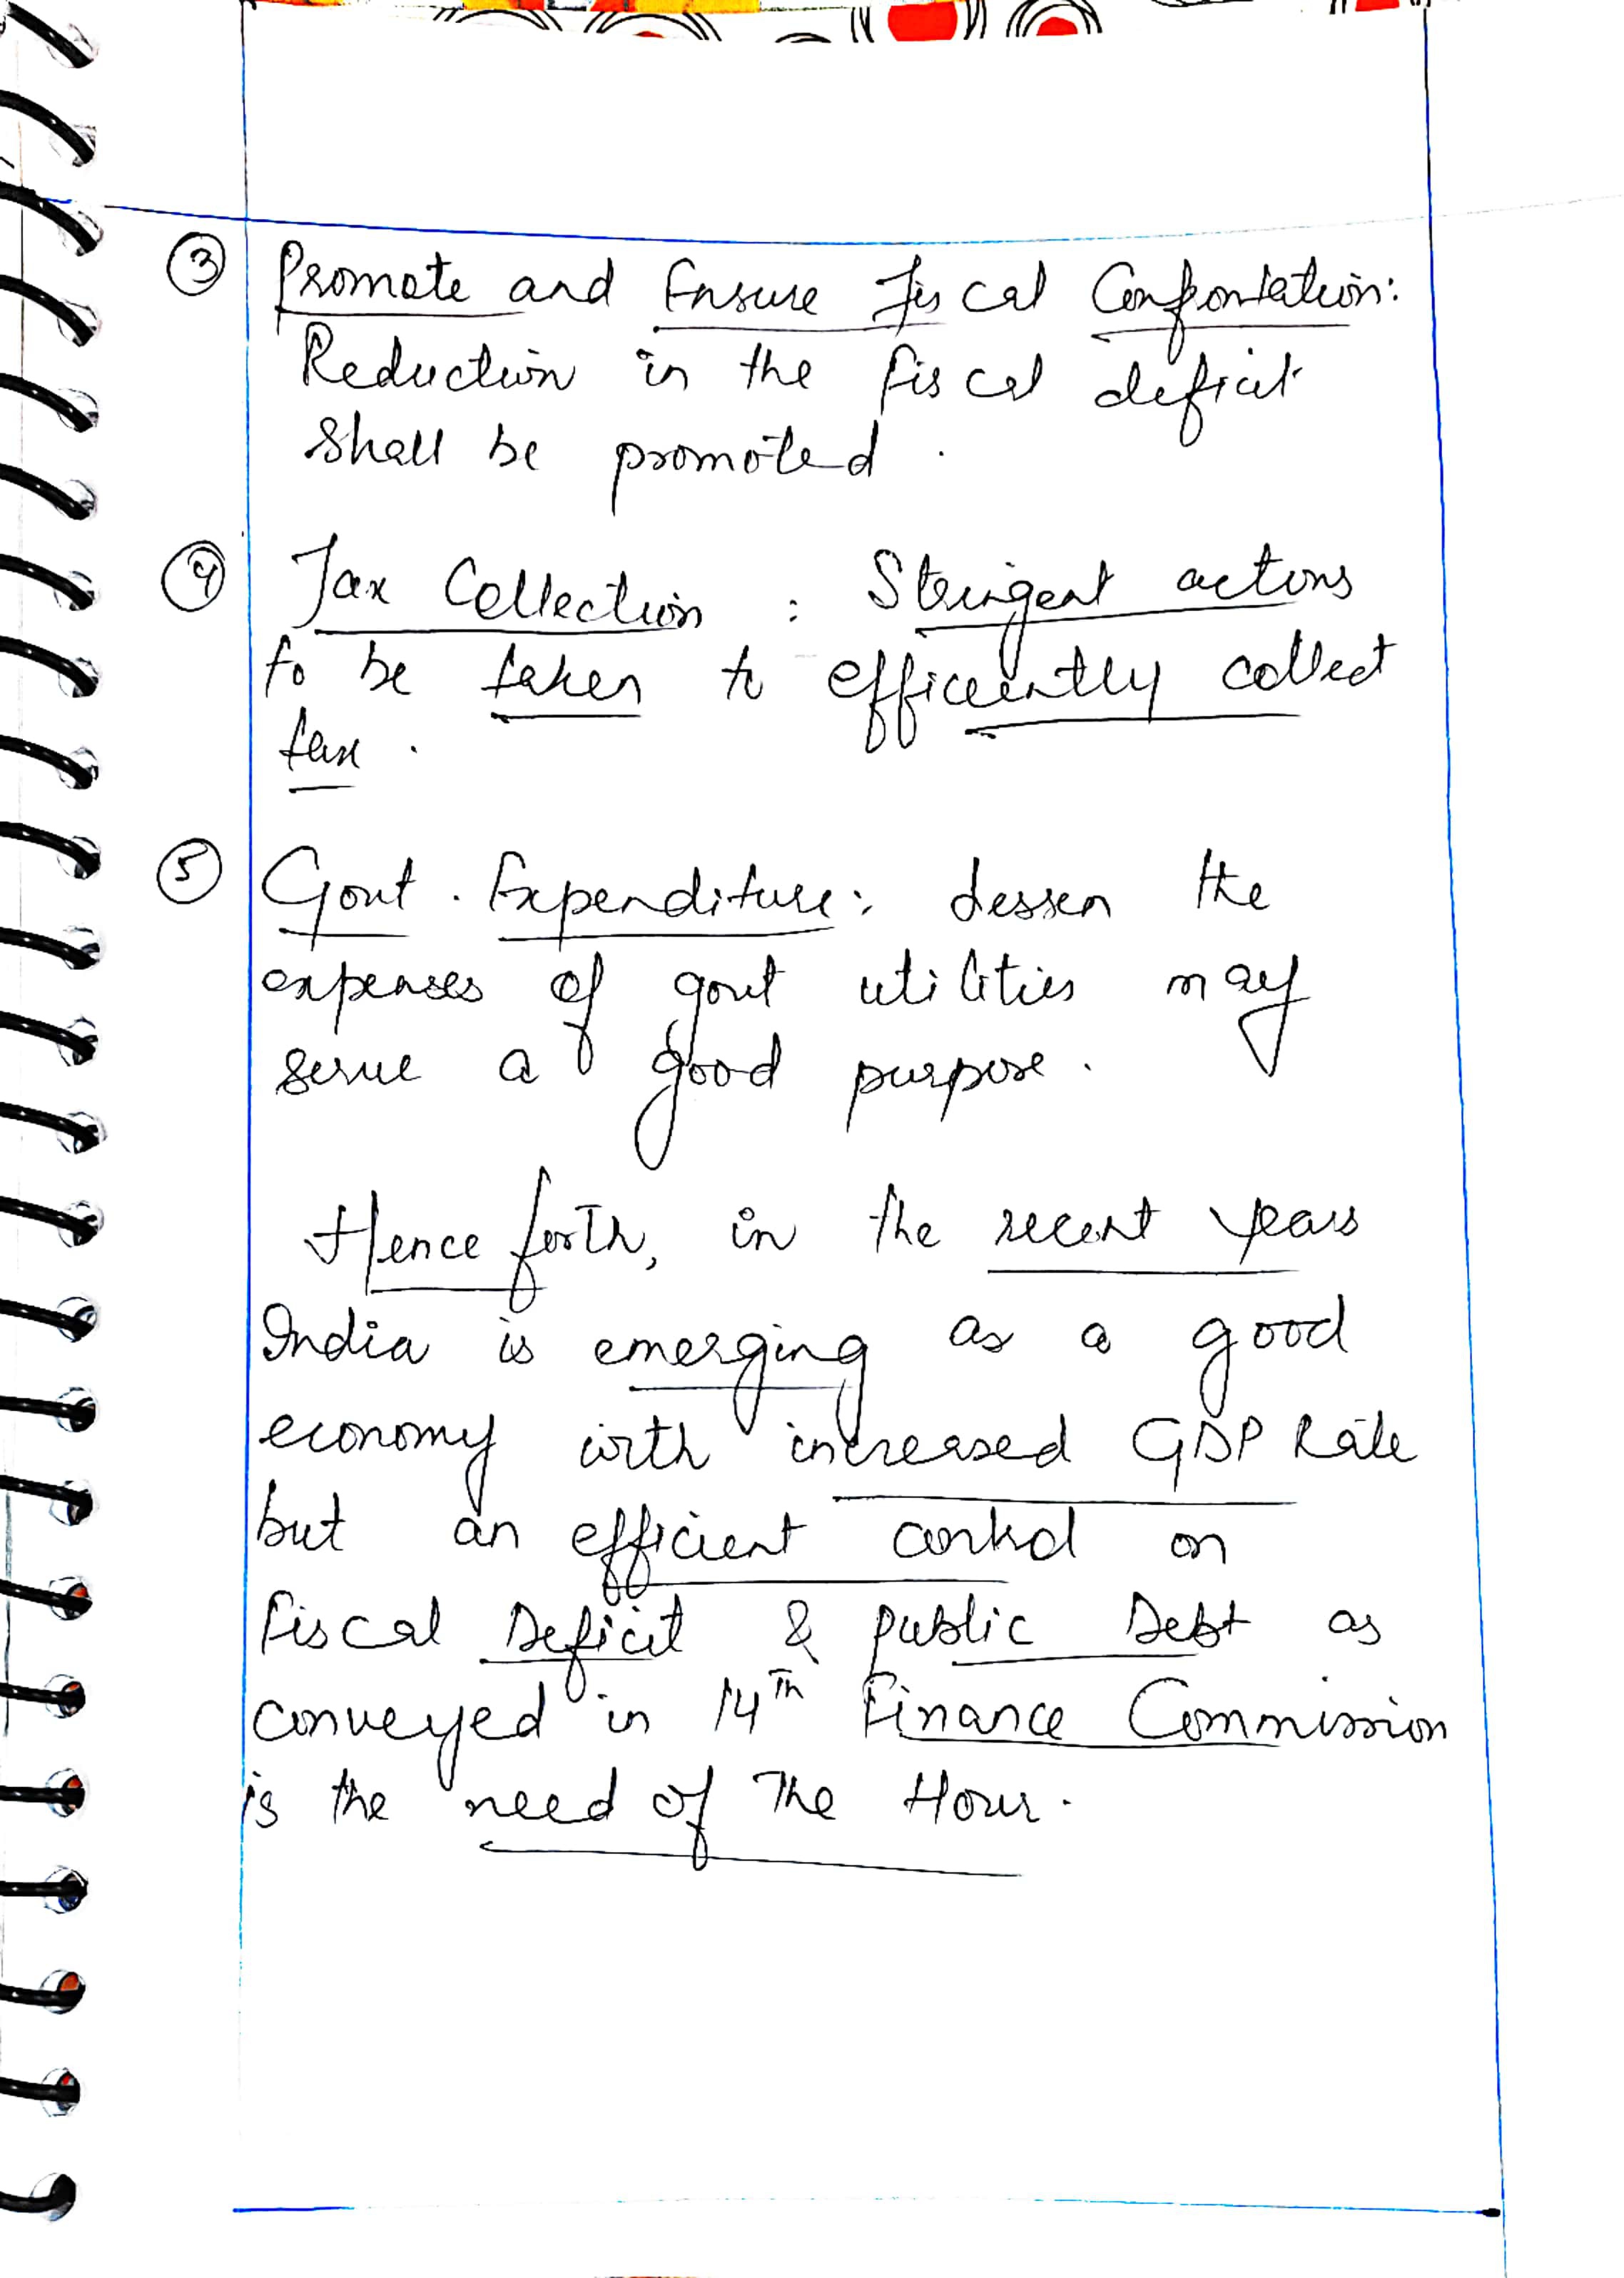 ③ Promote and Ensure Fiscal Confrontation:
Reduction in the fiscal deficit
shall be promoted.
④ Tax Collection : Stringent actions
to be taken to efficiently collect
tax.
⑤ Govt. Expenditure: Lessen the
expenses of govt utilities may
serve a good purpose.
Hence forth, in the recent years
India is emerging as a good
economy with increased GDP Rate
but an efficient control on
Fiscal Deficit & Public Debt as
conveyed in 14th Finance Commission
is the need of the Hour.